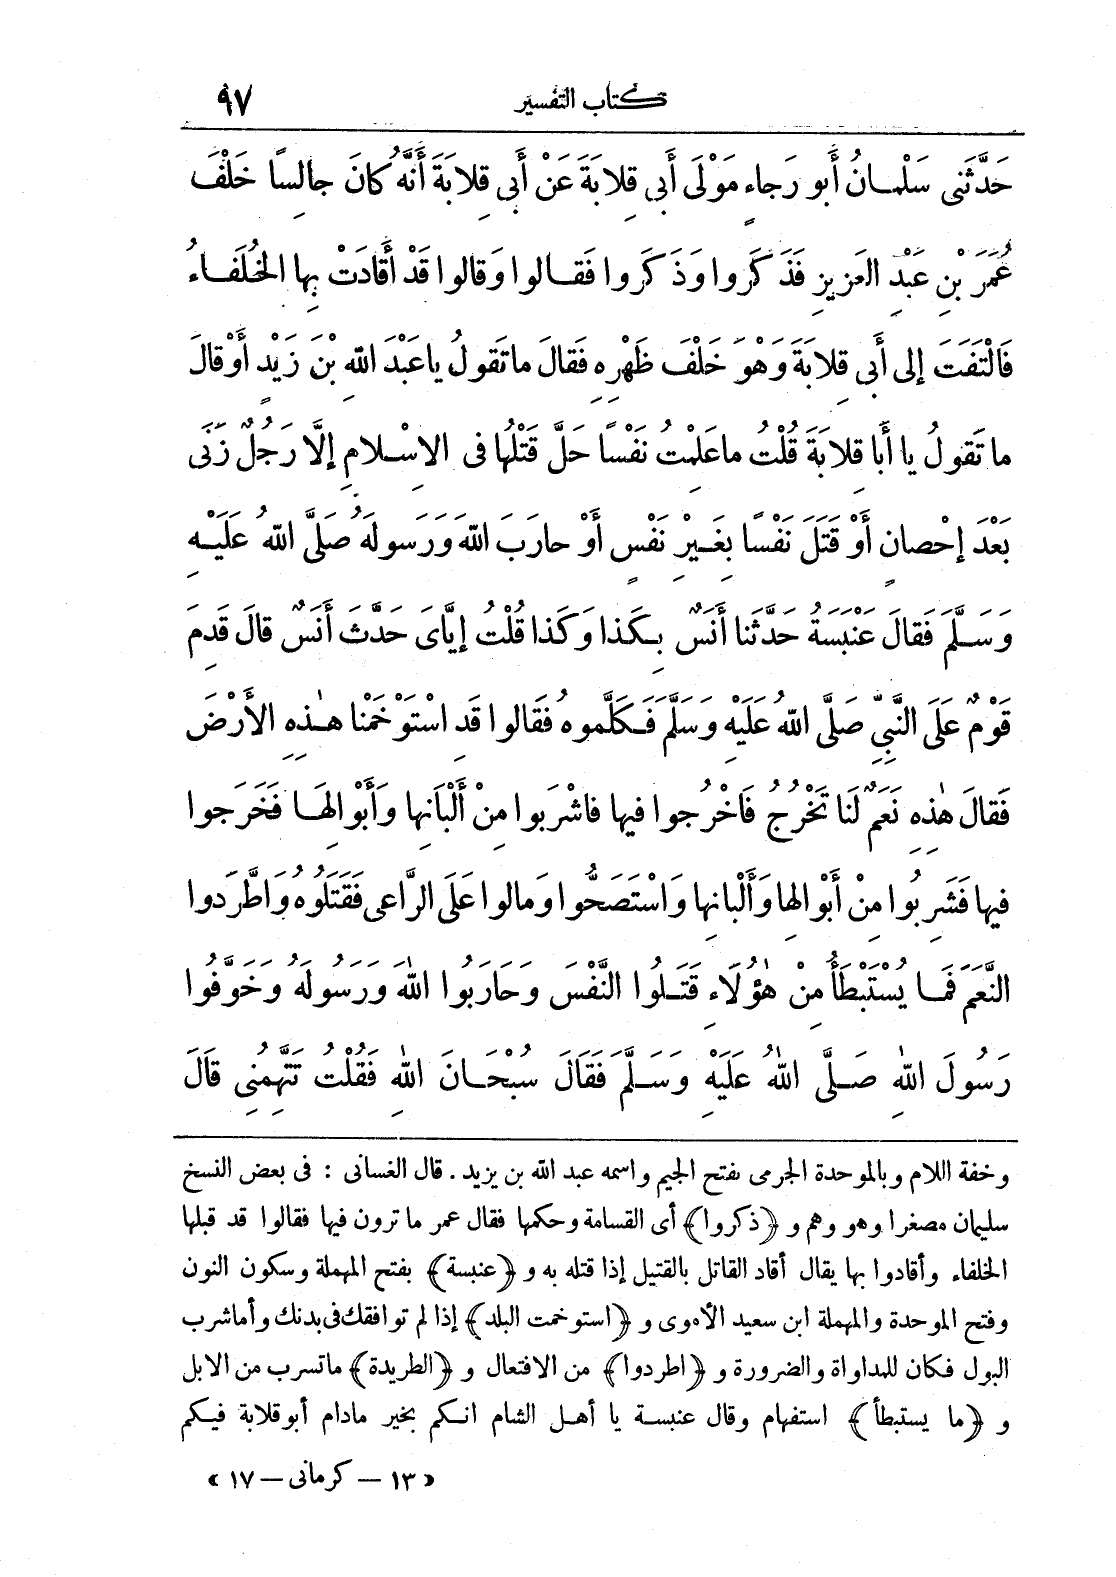 كتاب التفسير ٩٧
حَدَّثَنِى سَلْمَانُ أَبو رَجاءٍ مَوْلَى أَبِى قِلابَةَ عَنْ أَبِى قِلابَةَ أَنَّهُ كانَ جالِسًا خَلْفَ
عُمَرَ بْنِ عَبْدِ العَزيزِ فَذَكَرُوا وَذَكَرُوا فَقالوا وَقالوا قَدْ أَقادَتْ بِها الخُلَفاءُ
فَالْتَفَتَ إلى أَبِى قِلابَةَ وَهْوَ خَلْفَ ظَهْرِهِ فَقالَ ماتَقولُ ياعَبْدَ اللّهِ بْنَ زَيْدٍ أَوْقالَ
ما تَقولُ يا أَبا قِلابَةَ قُلْتُ ماعَلِمْتُ نَفْسًا حَلَّ قَتْلُها فى الاِسْلامِ إلَّا رَجُلٌ زَنَى
بَعْدَ إحْصانٍ أَوْ قَتَلَ نَفْسًا بِغَيْرِ نَفْسٍ أَوْ حارَبَ اللّهَ وَرَسولَهُ صَلَّى اللّهُ عَلَيْهِ
وَسَلَّمَ فَقالَ عَنْبَسَةُ حَدَّثَنا أَنَسٌ بِكَذا وَكَذا قُلْتُ إيَّاىَ حَدَّثَ أَنَسٌ قالَ قَدِمَ
قَوْمٌ عَلَى النَّبِىِّ صَلَّى اللّهُ عَلَيْهِ وَسَلَّمَ فَكَلَّموهُ فَقالوا قَدِ اسْتَوْخَمْنا هٰذِهِ الأَرْضَ
فَقالَ هٰذِهِ نَعَمٌ لَنا تَخْرُجُ فَاخْرُجوا فيها فاشْرَبوا مِنْ أَلْبَانِها وَأَبْوالِهَا فَخَرَجوا
فيها فَشَرِبُوا مِنْ أَبْوالِها وَأَلْبانِها وَاسْتَصَحُّوا وَمالوا عَلَى الرَّاعى فَقَتَلُوهُ وَاطَّرَدوا
النَّعَمَ فَمَا يُسْتَبْطَأُ مِنْ هٰؤُلَاءِ قَتَلُوا النَّفْسَ وَحَارَبُوا اللّٰهَ وَرَسُولَهُ وَخَوَّفُوا
رَسُولَ اللّٰهِ صَلَّى اللّٰهُ عَلَيْهِ وَسَلَّمَ فَقَالَ سُبْحَانَ اللّٰهِ فَقُلْتُ تَتَّهِمُنِى قَالَ
وخفة اللام وبالموحدة الجرمى بفتح الجيم واسمه عبد اللّه بن يزيد . قال الغسانى : فى بعض النسخ
سليمان مصغرا وهو وهم و ﴿ذكروا﴾ أى القسامة وحكمها فقال عمر ما ترون فيها فقالوا قد قبلها
الخلفاء وأقادوا بها يقال أقاد القاتل بالقتيل إذا قتله به و ﴿عنبسة﴾ بفتح المهملة وسكون النون
وفتح الموحدة والمهملة ابن سعيد الأموى و ﴿استوخمت البلد﴾ إذا لم توافقك فى بدنك وأما شرب
البول فكان للمداواة والضرورة و ﴿اطردوا﴾ من الافتعال و ﴿الطريدة﴾ ماتسرب من الابل
و ﴿ما يستبطأ﴾ استفهام وقال عنبسة يا أهل الشام انكم بخير مادام أبو قلابة فيكم
« ١٣ – كرمانى – ١٧ »